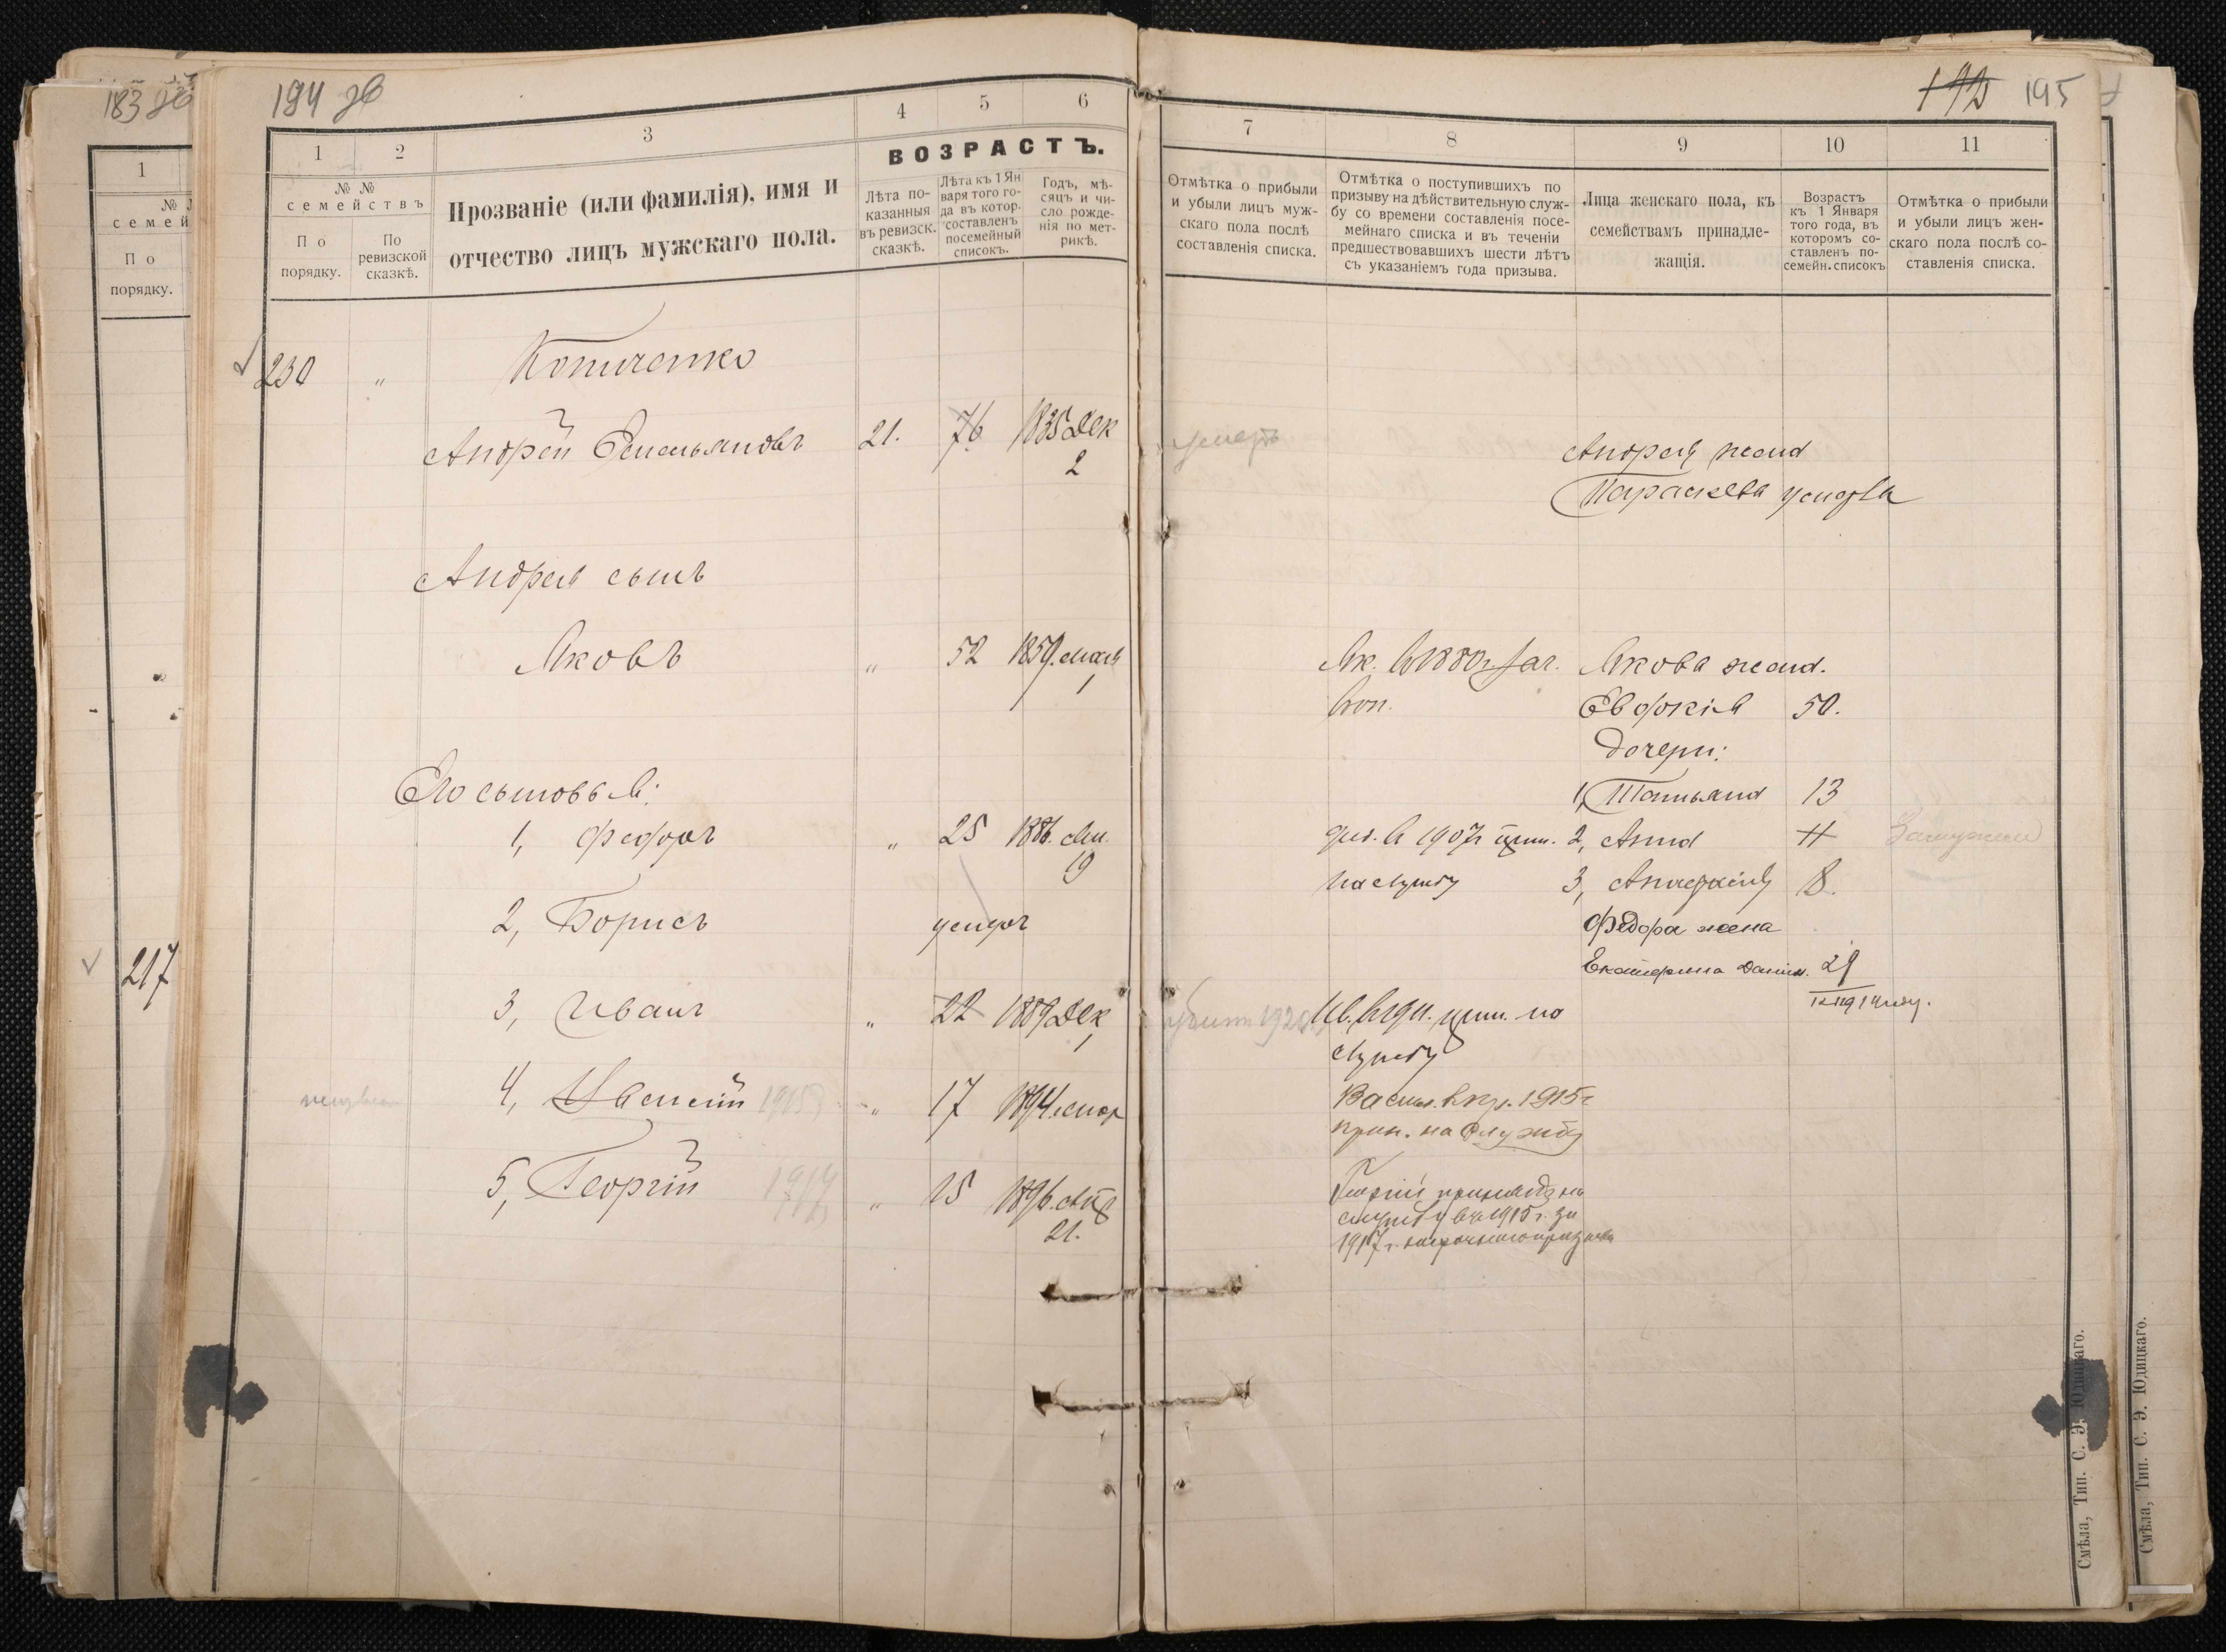 183 зв
194 зв
1
№
семей
По
порядку.
217
1
2
3
4
5
6
№ №
семействъ
По
порядку.
По
ревизской
сказкѣ.
Прозваніе (или фамилія), имя и
отчество лицъ мужскаго пола.
ВОЗРАСТЪ.
Лѣта по-
казанныя
въ ревизск.
сказкѣ.
Лѣта къ 1 Ян
варя того го-
да въ котор.
составленъ
посемейный
списокъ.
Годъ, мѣ-
сяцъ и чи-
сло рожде-
нія по мет-
рикѣ.
230 „
Андрей Емельяновъ 21. 76 1835 Дек
2
Андрея сынъ
Яковъ „ 52 1859
1
Его сыновья:
1, Федоръ „ 25 1886.
19
2, Борисъ умеръ
3, Иванъ „ 22 1889 Дек
1
4, Василій 1915 „ 17 1894.
5, Георгій „ 15 1896.
21.
192 195
7
8
9
10
11
Отмѣтка о прибыли
и убыли лицъ муж-
скаго пола послѣ
составленія списка.
Отмѣтка о поступившихъ по
призыву на дѣйствительную служ-
бу со времени составленія посе-
мейнаго списка и въ теченіи
предшествовавшихъ шести лѣтъ
съ указаніемъ года призыва.
Лица женскаго пола, къ
семействамъ принадле-
жащія.
Возрастъ
къ 1 Января
того года, въ
которомъ со-
ставленъ по-
семейн. списокъ
Отмѣтка о прибыли
и убыли лицъ жен-
скаго пола послѣ со-
ставленія списка.
умеръ
Андрея жена
Параскева умерла
Як. в 1880г зач. Якова жена.
Евфокія 50.
дочери:
1, Татьяна 13
в 1907г прин. 2, Анна 11
на службу 3, 8.
Федора жена
Екатерина Данил. 29
Ив. прин. на
службу
Васил. 1915г
прин. на службу
Георгій принятъ на
службу въ 1915 г. за
1917 г. призыва
Смѣла, Тип. С. Э. Юдицкаго.
Смѣла, Тип. С. Э. Юдицкаго.